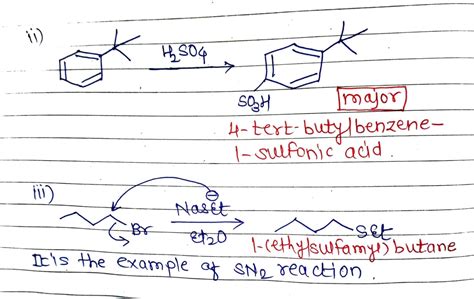 ii)
H2SO4
SO3H
major
4-tert-butylbenzene-
1-sulfonic acid.
iii)
Br
NaSEt
Et2O
SEt
1-(ethylsulfamyl) butane
It's the example of SN2 reaction.